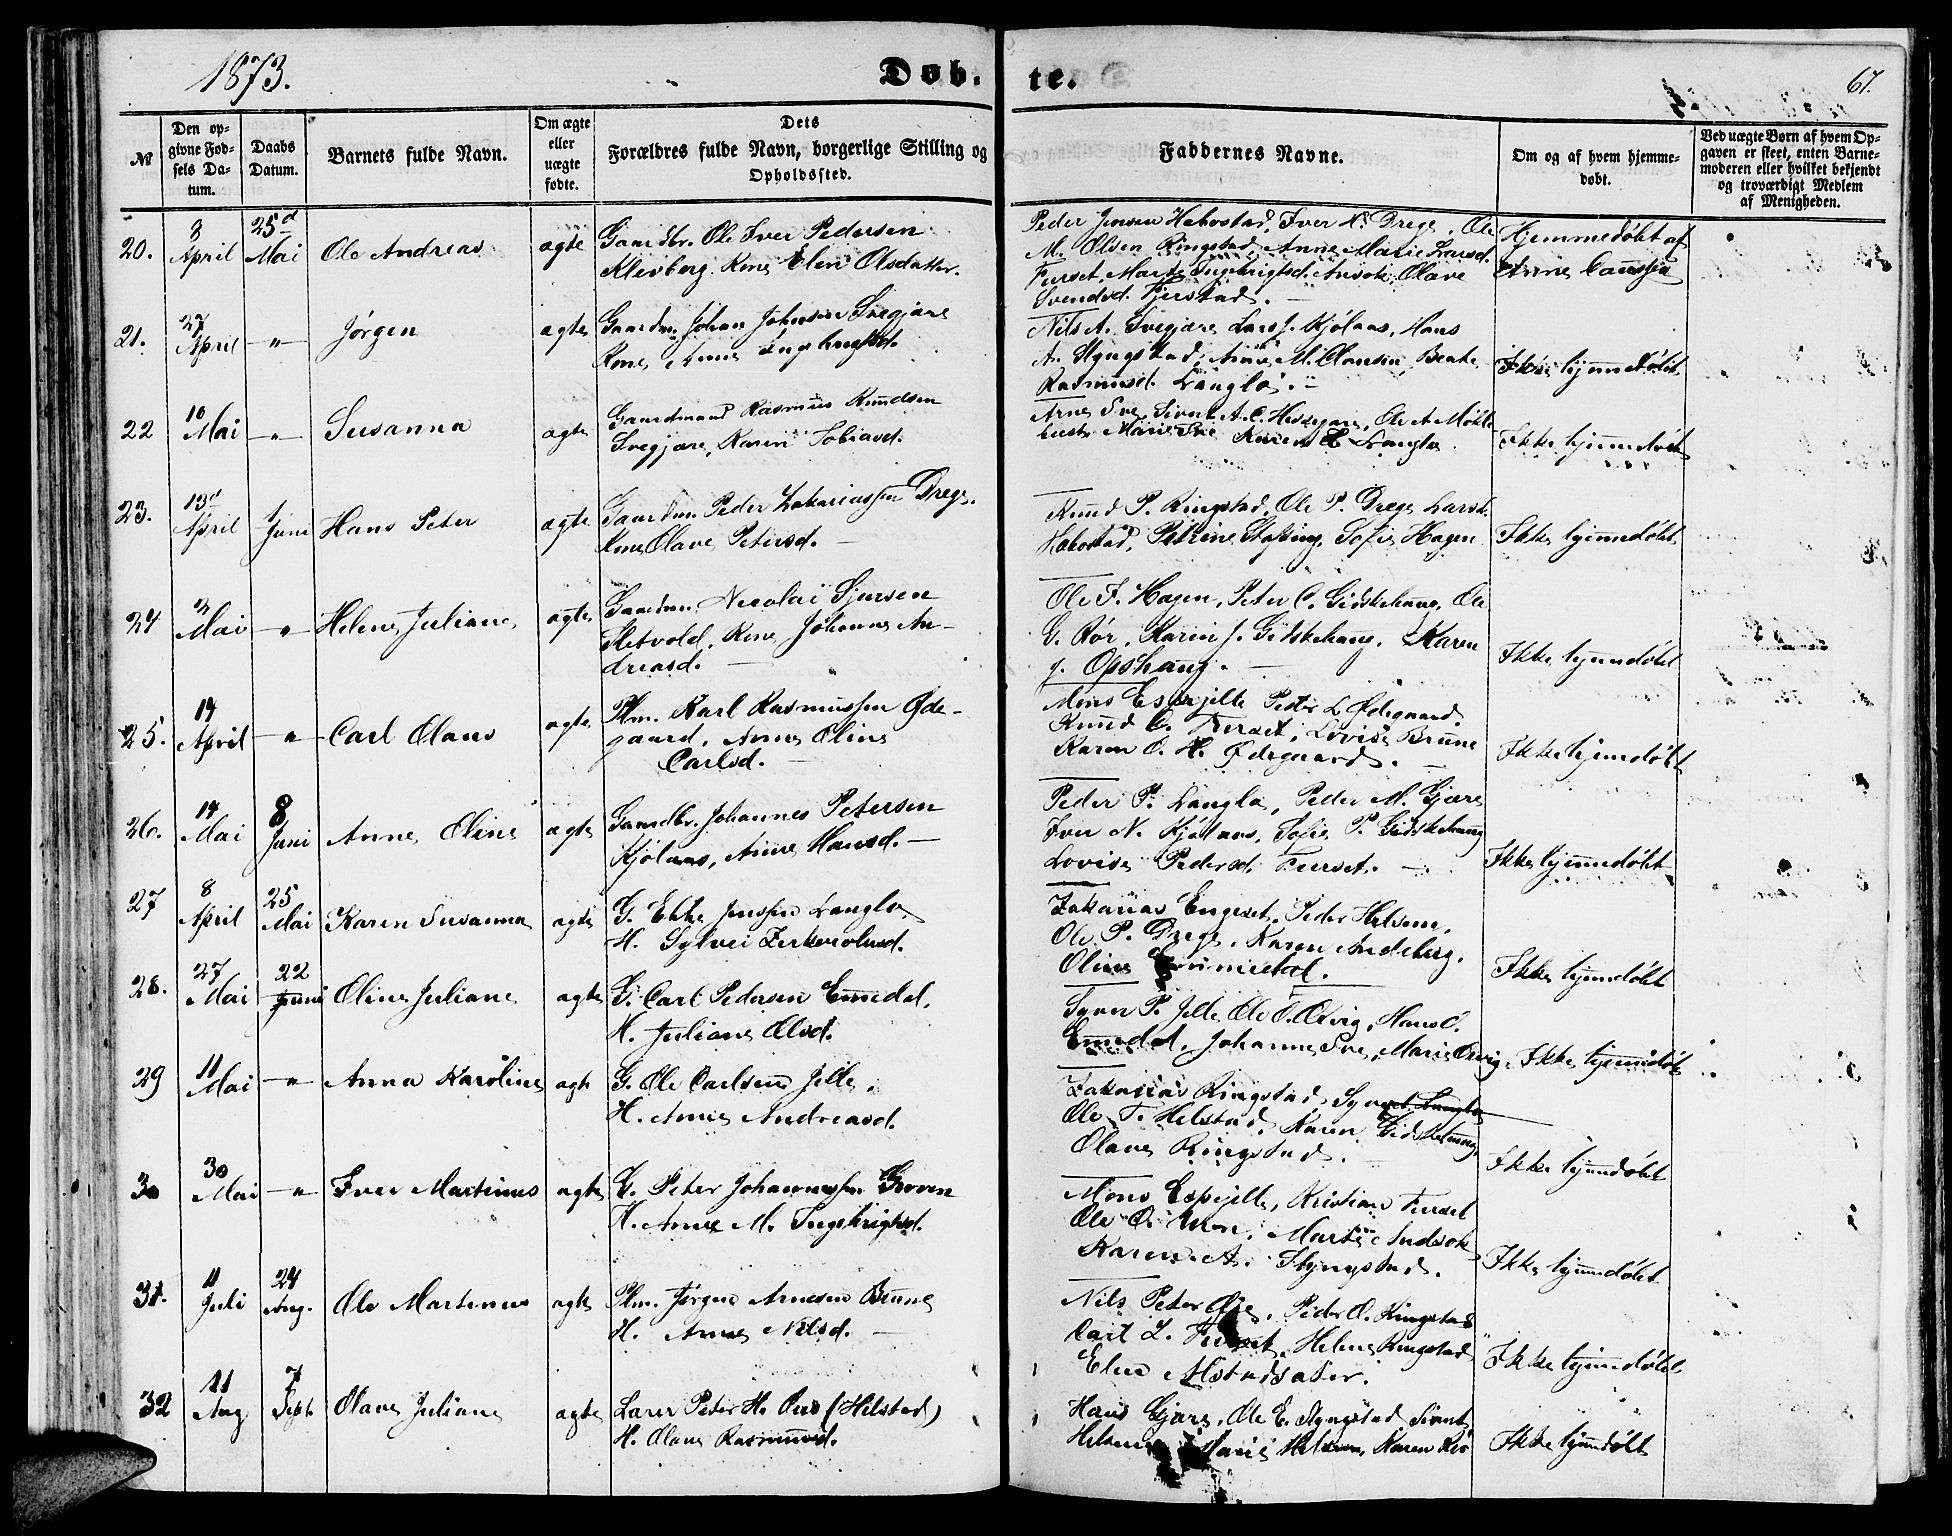 1873.
Dob.
te.
67.
№
Den op-
givne Fød-
sels Da-
tum.
Daabs
Datum.
Barnets fulde Navn.
Om ægte
eller
uægte
fødte.
Dets
Forældres fulde Navn, borgerlige Stilling og
Opholdssted.
Faddernes Navne.
Om og af hvem hjemme-
døbt.
Ved uægte Børn af hvem Op-
gaven er skeet, enten Barne-
moderen eller hvilket bekjendt
og troværdigt Medlem
af Menigheden.
20. April 25d Mai Ole Andreas ægte Gaardbr. Ole Iver Pedersen
Klevberg. Kone Elen Olsdatter.
Peder Jensen Habostad, Iver Drege, Ole
M. Olsen Ringstad, Anne Marie Larsd.
Furset, Marte Ingebrigtsd. Ansok, Olave
Svendsd. Fjerstad.
Hjemmedøbt af
Arne
21. 27 April " Jørgen ægte Gaardm. Johan Johnsen Svegjære
Kone Anne
Nils A. Svegjære, Lars J. Kjølaas, Hans
A. Styngstad, Anne M. Beate
Rasmusd. Langlo.
Ikke hjemmedøbt
22 10 Mai " Susanna ægte Gaardmand Rasmus Knudsen
Svegjære, Karen Tobiasd.
Arne Sve, Sivert A. C. Hessegjære, Ole A. Møkle
bust, Marie Sve Karen E Langlo.
Ikke hjemmedøbt
23. 13d April 1 Juni Hans Peter ægte Gaardm. Peder Zakariassen Drege.
Kone Olave Petersd.
Knud P. Ringstad, Ole P. Drege, Lars
Habostad, Petrine Sofie Hagen
Ikke hjemmedøbt
24 2 Mai " Helene Juliane ægte Gaardm. Nicolai Sjursen
Sletvold, Kone Johanne An-
dreasd.
Ole J. Hagen, Peter C. Gidskehaug, Ole
G. Rør, Karin J. Gidskehaug, Karen
J. Opshaug.
Ikke hjemmedøbt
25. 14 April " Carl Olaus ægte Plm. Karl Rasmussen Øde-
gaard, Anne Oline
Carlsd.
Mons Espejelte Peder L. Ødegaard
Knud C. Furset, Lovise Brune
Karen O. H. Ødegaard.
Ikke hjemmedøbt
26. 14 Mai 8 Juni Anne Oline ægte Gaardbr. Johannes Petersen
Kjølaas, Anne Hansd.
Peder P. Langlo, Peder M. Gjære
Iver N. Kjølaas, Sofie P. Gidskehaug
Lovise Pedersd. Furset.
Ikke hjemmedøbt
27 8 April 25 Mai Karen Susanna ægte G. Ebbe Jenssen Langlo
H. Sylvei
Zakarias Engeset, Peder Helsem,
Ole P. Drege, Karen Andeberg,
Oline
Ikke hjemmedøbt
28. 27 Mai 22 Juni Oline Juliane ægte G. Carl Pedersen Emedal,
H. Juliane Olsd.
Syver P. Jelle, Ole O. Overvig, Hans C.
Emedal, Johanne Sve, Marie
Ikke hjemmedøbt
29 11 Mai " Anna Karoline ægte G. Ole Carlsen Jelle.
H. Anne Andreasd.
Zakarias Ringstad
Ole T. Helstad, Karen Gidskehaug,
Olave Ringstad.
Ikke hjemmedøbt
30 30 Mai " Iver Martinus ægte G. Peter Johannessen Groven
H. Anne M. Ingebrigtsd.
Mons Espejelte, Kristian Furset
Ole O. Moe, Marte Andsok
Karen A. Styngstad.
Ikke hjemmedøbt
31. 11 Juli 24 Aug. Ole Martinus ægte Plm. Jørgen Arnesen Brune
H. Anne Nilsd.
Nils Peter Peder O. Ringstad
Carl L. Furset, Helene Ringstad
Elen
Ikke hjemmedøbt
32 11 Aug 7 Sept. Olave Juliane ægte Lærer Peter H. (Helstad)
H. Olave Rasmusd.
Hans Gjære, Ole E. Styngstad Sivert
Helsem Marie Helsem, Karen Rør
Ikke hjemmedøbt